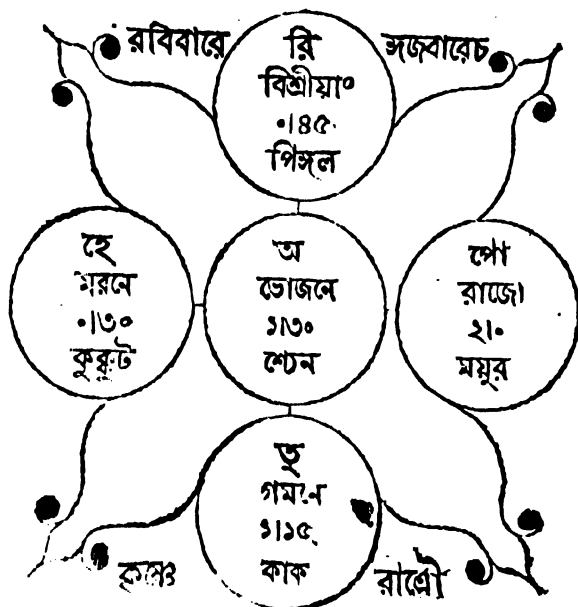 রবিবারে
রি
বিশ্রীয়া০
০।৪৫
পিঙ্গল
ঙ্গজবারেচ
হে
মরনে
০।৩০
কুক্কুট
অ
ভোজনে
১।৩০
শ্যেন
পো
রাজ্যে
২।০
ময়ুর
তু
গমনে
১।১৫
কাক
কৃষ্ণে
রাত্রৌ